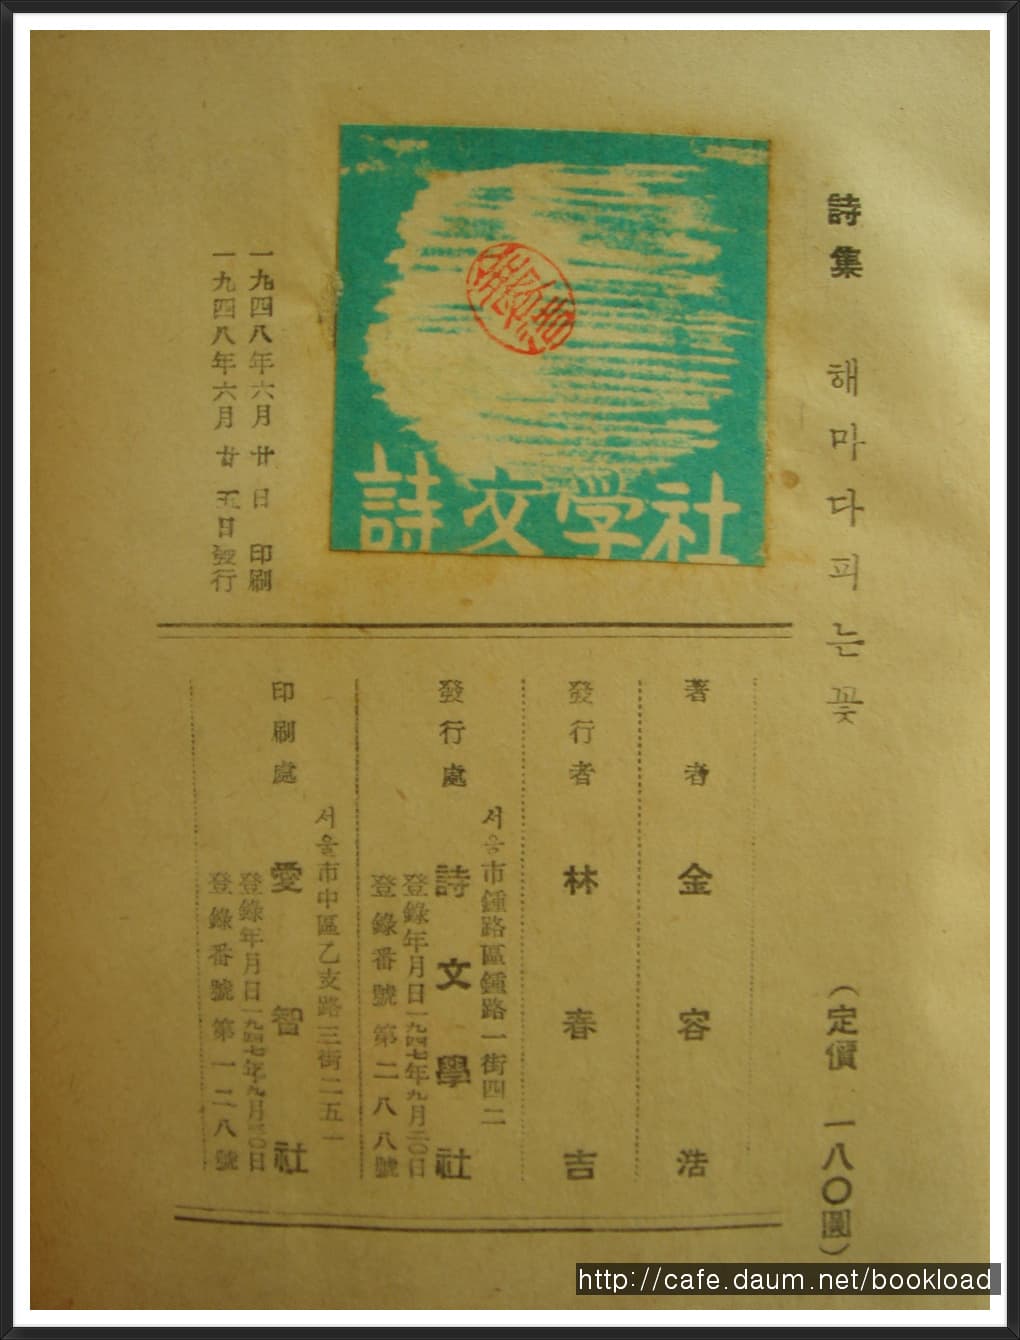 詩集 해마다피는꽃 （定價 一八〇圓）
詩文学社
一九四八年六月廿日 印刷
一九四八年六月廿五日發行
著者 金容浩
發行者 林春吉
서울市鍾路區鍾路一街四二
發行處 詩文學社
登錄年月日一九四七年九月三〇日
登錄番號 第二八八號
서울市中區乙支路三街二五一
印刷處 愛智社
登錄年月日一九四七年九月三〇日
登錄番號 第一二八號
http://cafe.daum.net/bookload